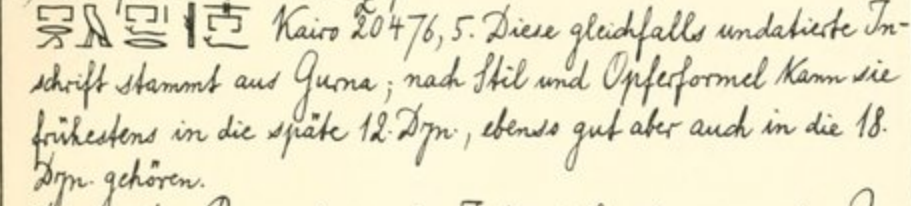 Kairo 20476, 5. Diese gleichfalls undatierte In-
schrift stammt aus Gurna; nach Stil und Opferformel kann sie
frühestens in die späte 12. Dyn., ebenso gut aber auch in die 18.
Dyn. gehören.